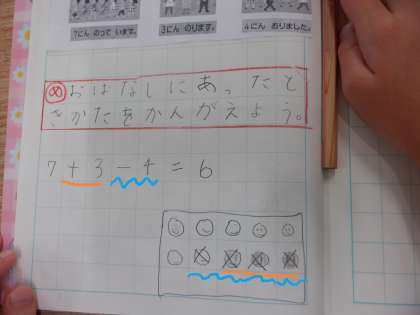 7にん のって います。
3にん のります。
4にん おりました。
めおはなしにあったと
きかたをかんがえよう。
7+3-4=6